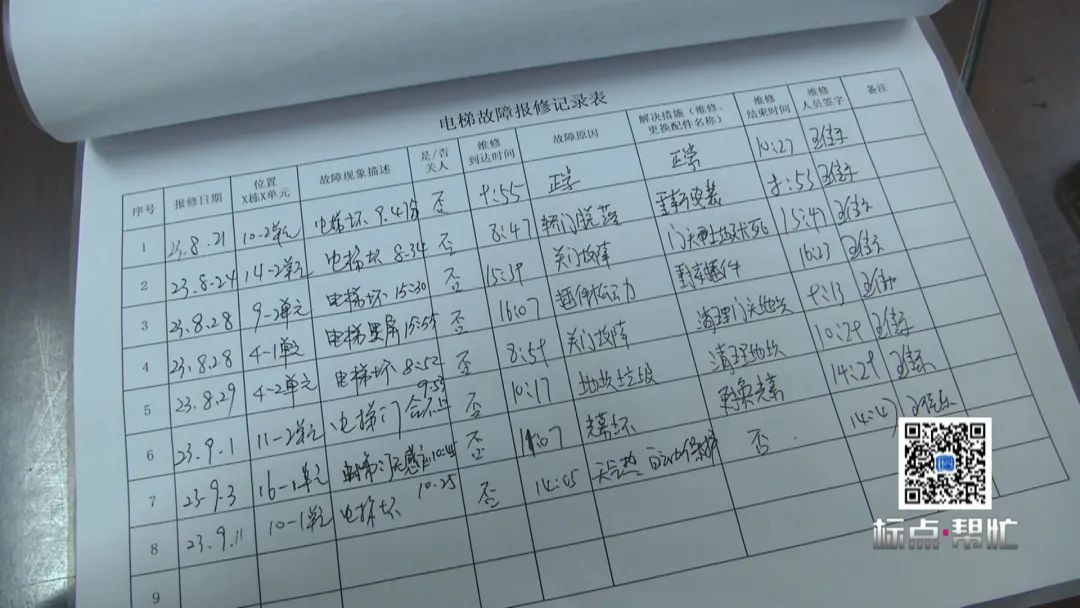 电梯故障报修记录表
序号 报修日期 位置X栋X单元 故障现象描述 是/否关人 维修到达时间 故障原因 解决措施（维修、更换配件名称） 维修结束时间 维修人员签字 备注
1 23.8.21 10-2单元 电梯坏 9.47 否 9:55 正常 正常 10:27
2 23.8.24 14-2单元 电梯坏 8:34 否 8:47 轿门脱落 重新安装 8:55
3 23.8.28 9-2单元 电梯坏 15:30 否 15:39 关门故障 15:47
4 23.8.28 4-1单元 电梯黑屏 15:55 否 16:07 插件松动 16:23
5 23.8.29 4-2单元 电梯坏 8:52 否 8:59 关门故障 清理门头地坎 9:13
6 23.9.1 11-2单元 电梯门合不上 9:53 否 10:17 地坎垃圾 清理地坎 10:29
7 23.9.3 16-1单元 否 14:07 光幕坏 更换光幕 14:29
8 23.9.11 10-1单元 电梯坏 10:25 否 14:45 天气热 自动保护 否 14:47
9
标点·帮忙